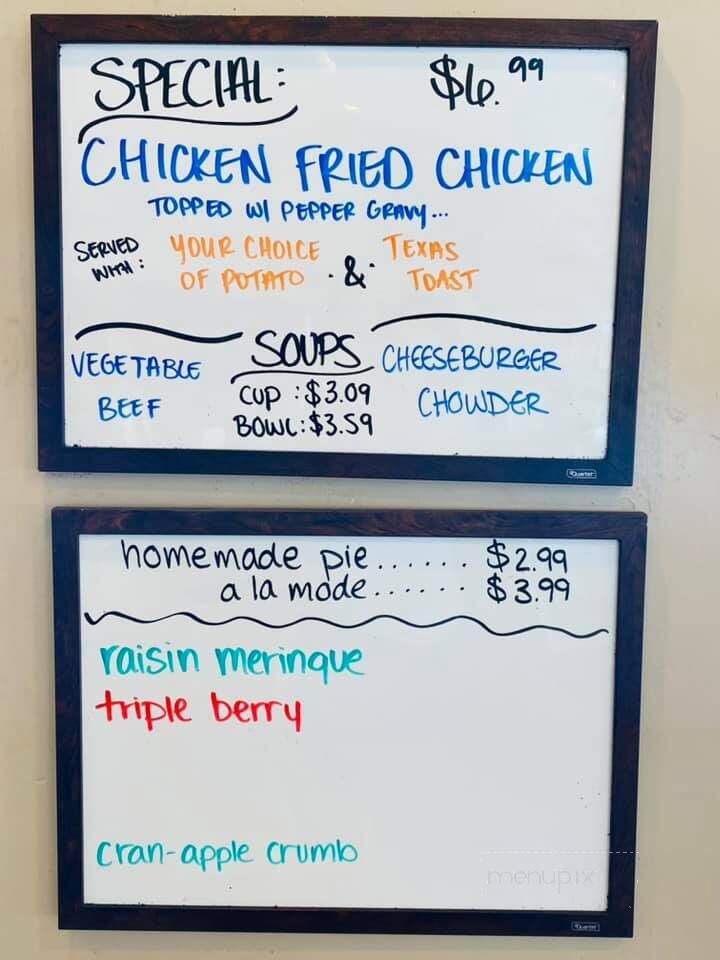 SPECIAL: $6.99
CHICKEN FRIED CHICKEN
TOPPED W/ PEPPER GRAVY...
SERVED WITH: YOUR CHOICE OF POTATO · & · TEXAS TOAST
SOUPS
VEGETABLE BEEF
CUP : $3.09
BOWL: $3.59
CHEESEBURGER CHOWDER
Quartet
homemade pie...... $2.99
a la mode...... $3.99
raisin meringue
triple berry
cran-apple crumb
menupix
Quartet